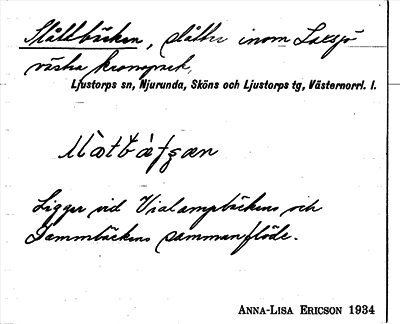 Slåttbäcken, slåtter inom Laxsjö
västra kronopark,
Ljustorps sn, Njurunda, Sköns och Ljustorps tg, Västernorrl. l.
Ligger vid Vialampbäckens och
Dammbäckens sammanflöde.
ANNA-LISA ERICSON 1934